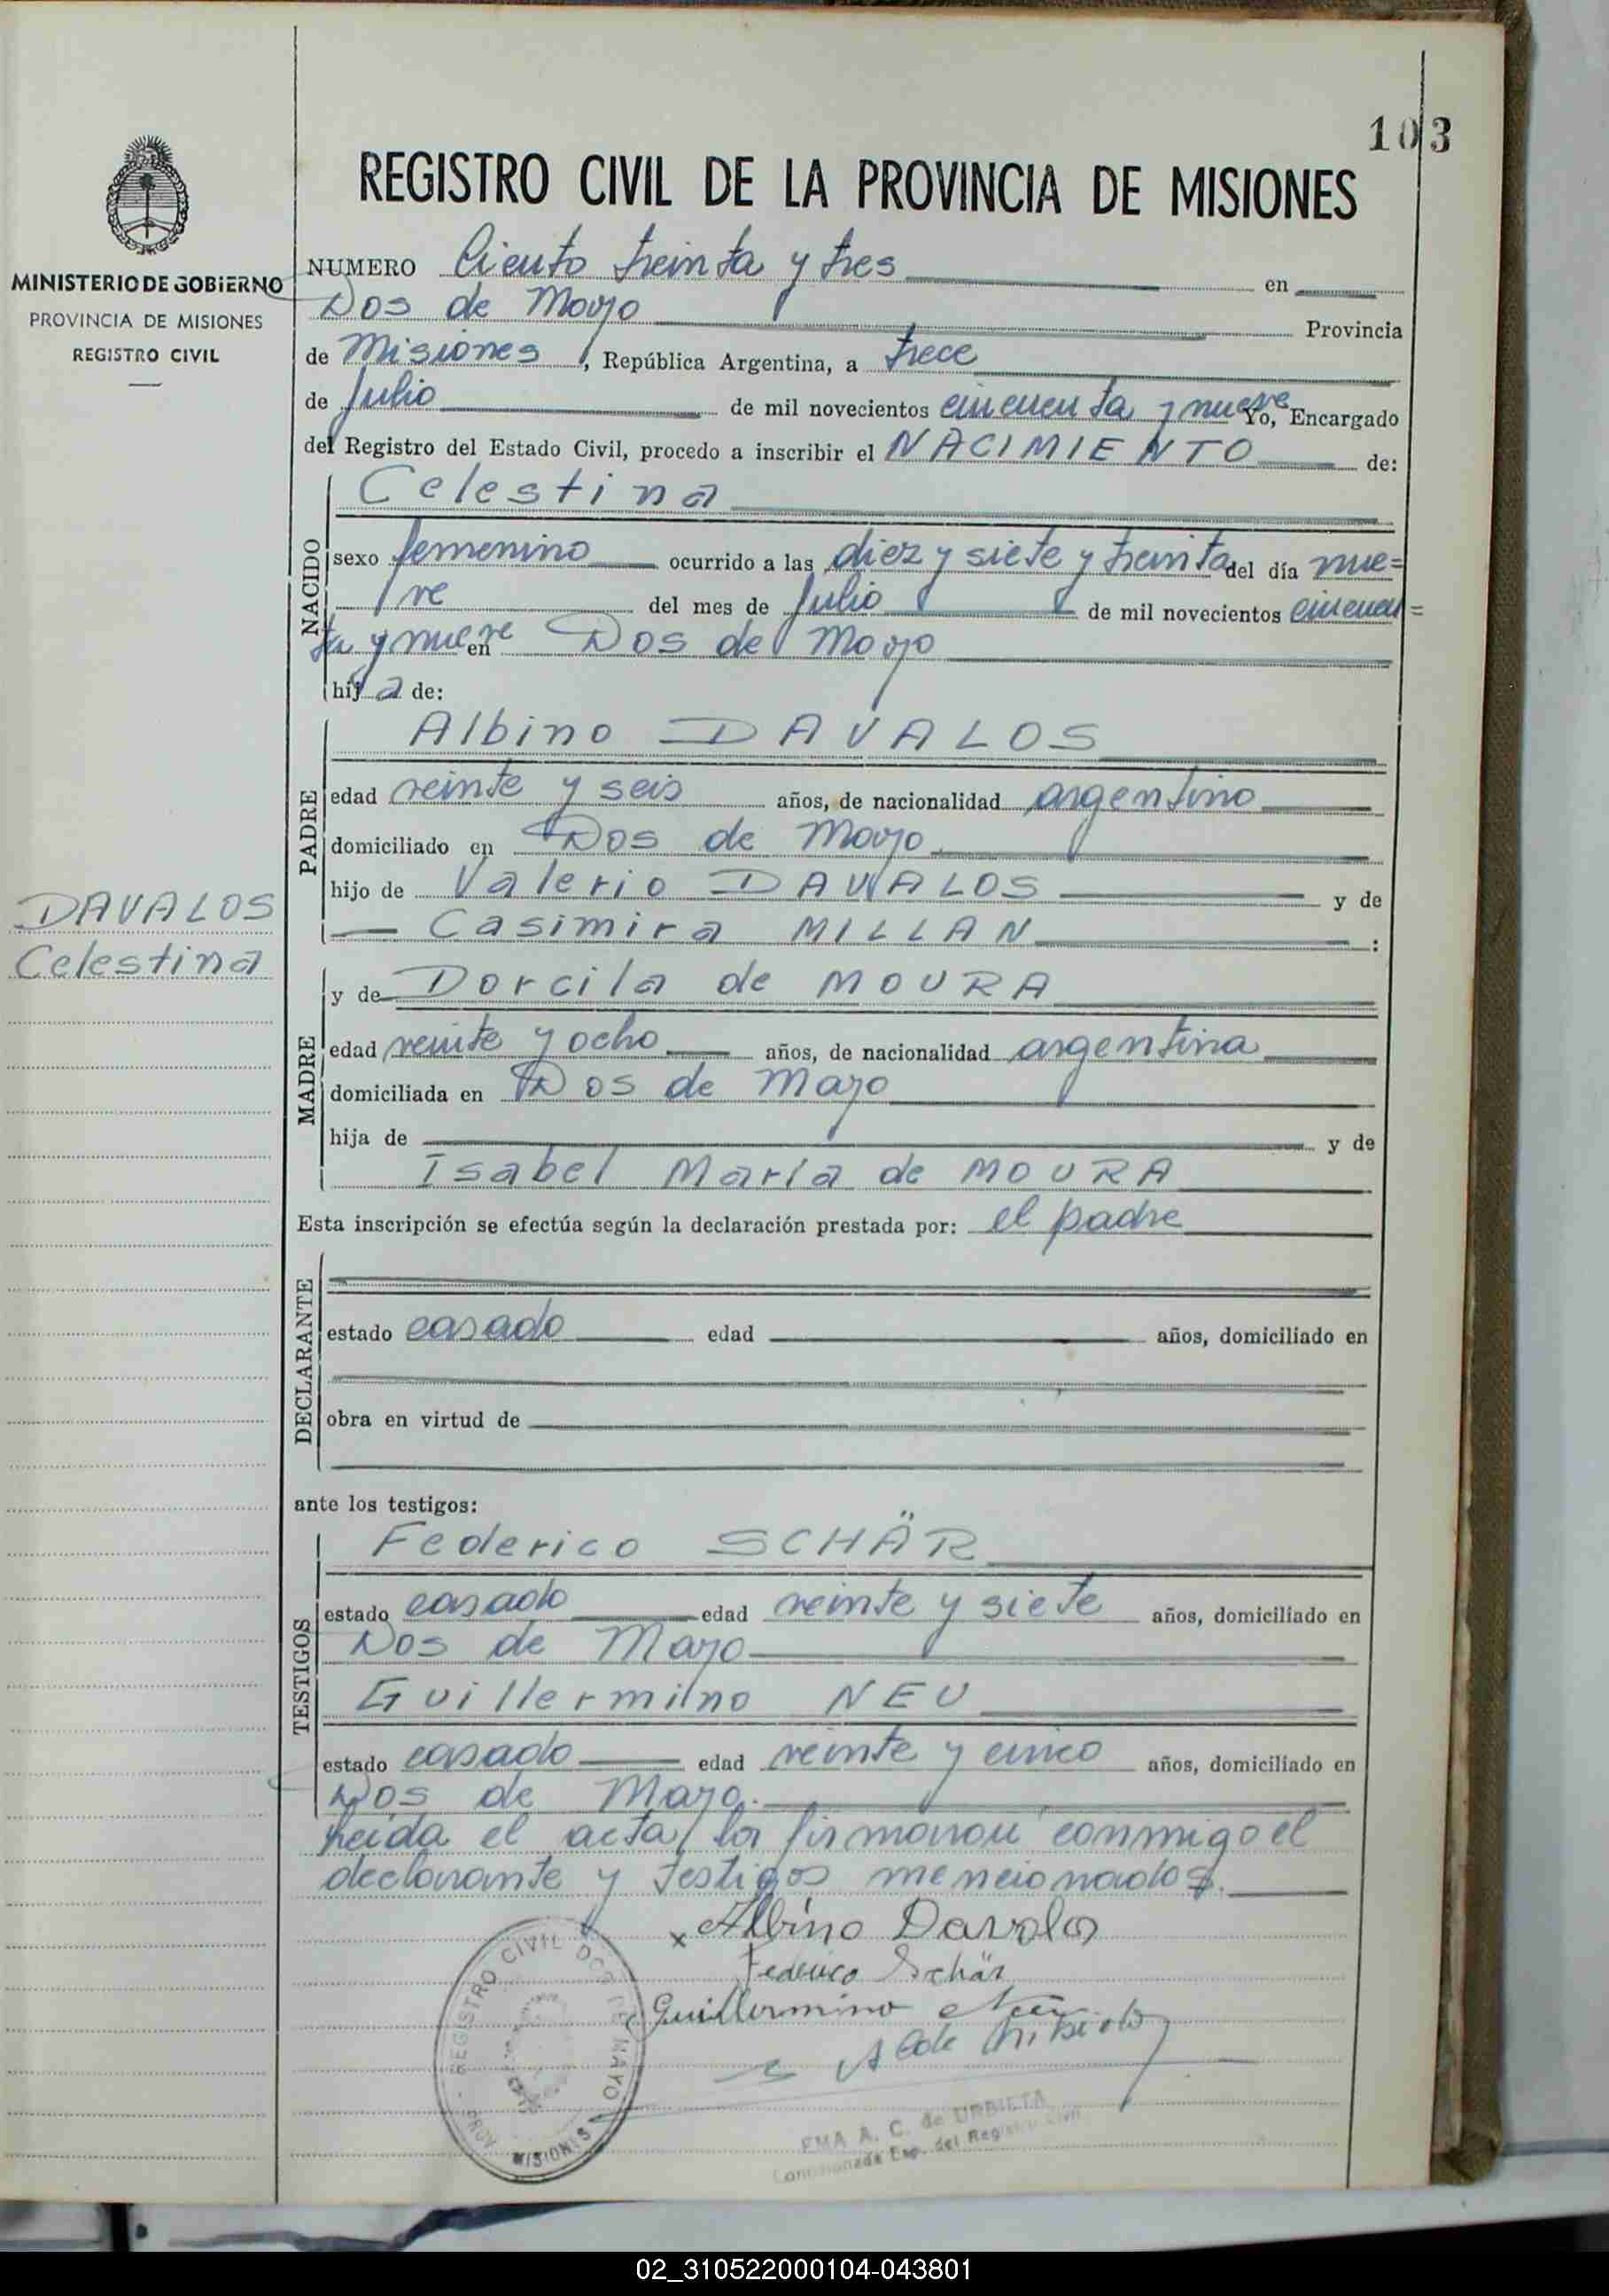 103
REGISTRO CIVIL DE LA PROVINCIA DE MISIONES
MINISTERIO DE GOBIERNO
PROVINCIA DE MISIONES
REGISTRO CIVIL
NUMERO Ciento treinta y tres en
Dos de Mayo Provincia
de Misiones, República Argentina, a trece
de Julio de mil novecientos cincuenta y nueve Yo, Encargado
del Registro del Estado Civil, procedo a inscribir el NACIMIENTO de:
NACIDO
Celestina
sexo femenino ocurrido a las diez y siete y treinta del día nue=
ve del mes de Julio de mil novecientos cincuen=
ta y nueve en Dos de Mayo
hija de:
PADRE
Albino DAVALOS
edad veinte y seis años, de nacionalidad argentino
domiciliado en Dos de Mayo
hijo de Valerio DAVALOS y de
Casimira MILLAN :
DAVALOS
Celestina
MADRE
y de Dorcila de MOURA
edad veinte y ocho años, de nacionalidad argentina
domiciliada en Dos de Mayo
hija de y de
Isabel María de MOURA
Esta inscripción se efectúa según la declaración prestada por: el padre
DECLARANTE
estado casado edad años, domiciliado en
obra en virtud de
ante los testigos:
TESTIGOS
Federico SCHÄR
estado casado edad veinte y siete años, domiciliado en
Dos de Mayo
Guillermino NEU
estado casado edad veinte y cinco años, domiciliado en
Dos de Mayo.
Leida el acta, la firmaron conmigo el
declarante y testigos mencionados.
x Albino Davalos
Federico Schär
Guillermino Neu
REGISTRO CIVIL DOS DE MAYO
PROV. MISIONES
EMA A. C. de URBIETA
Comisionada Esp. del Registro Civil
02_310522000104-043801